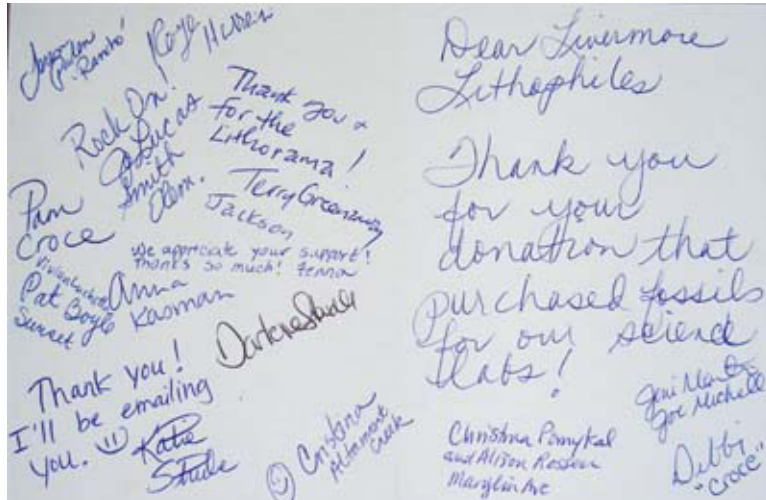 "Rambo"
Roye
Rock On!
Lucas
Smith
Elem.
Thank you +
for the
Lithorama!
Terry Greenaway
Jackson
Pam
Croce
We appreciate your support!
Thanks so much! Zenna
Pat Boyle
Sunset
Anna
Kasman
Darlene
Thank you!
I'll be emailing
you.
Katie
Stude
Cristina
Altamont
Creek
Dear Livermore
Lithophiles
Thank you
for your
donation that
purchased fossils
for our science
labs!
Joe Michell
Christina Pomykal
and Alison
Marylin Ave
Debbi
"Croce"